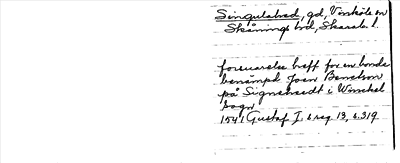 Singulstad, gd, Vinköls sn
Skånings hd, Skarab. l.
forsuarelse breff for en bonde
benämpd Joen Benctson
på Signelsædt i Winchel
sogn
1541 Gustaf I:s reg 13, s. 319